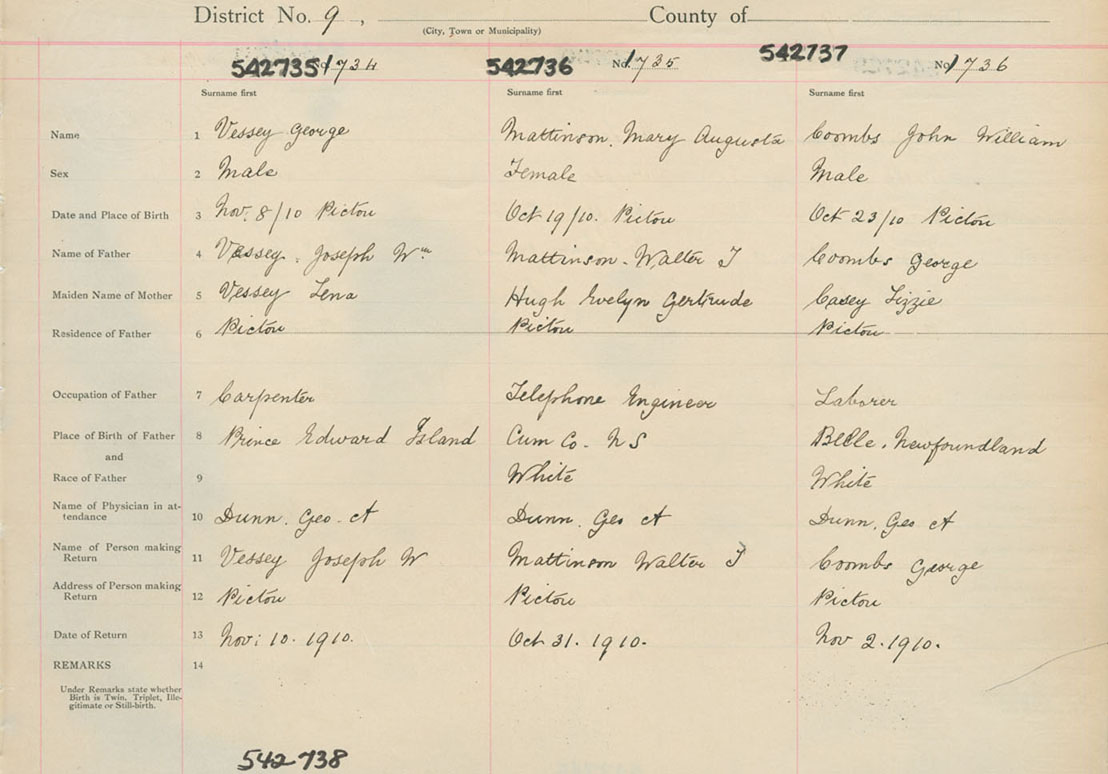 District No. 9, County of
(City, Town or Municipality)
542735 No. 1734 542736 No. 1735 542737 No. 1736
Surname first Surname first Surname first
Name 1 Vessey George Mattinson, Mary Augusta Coombs John William
Sex 2 Male Female Male
Date and Place of Birth 3 Nov. 8/10 Pictou Oct 19/10. Pictou Oct 23/10 Pictou
Name of Father 4 Vessey. Joseph Wm Mattinson. Walter T Coombs George
Maiden Name of Mother 5 Vessey Lena Hugh Evelyn Gertrude Casey Lizzie
Residence of Father 6 Pictou Pictou Pictou
Occupation of Father 7 Carpenter Telephone Engineer Laborer
Place of Birth of Father 8 Prince Edward Island Cum Co. N S Belle, Newfoundland
and
Race of Father 9 White White
Name of Physician in at-
tendance 10 Dunn. Geo. A Dunn. Geo A Dunn. Geo A
Name of Person making
Return 11 Vessey Joseph W Mattinson Walter T Coombs George
Address of Person making
Return 12 Pictou Pictou Pictou
Date of Return 13 Nov: 10. 1910. Oct 31. 1910. Nov 2. 1910.
REMARKS 14
Under Remarks state whether
Birth is Twin, Triplet, Ille-
gitimate or Still-birth.
542738